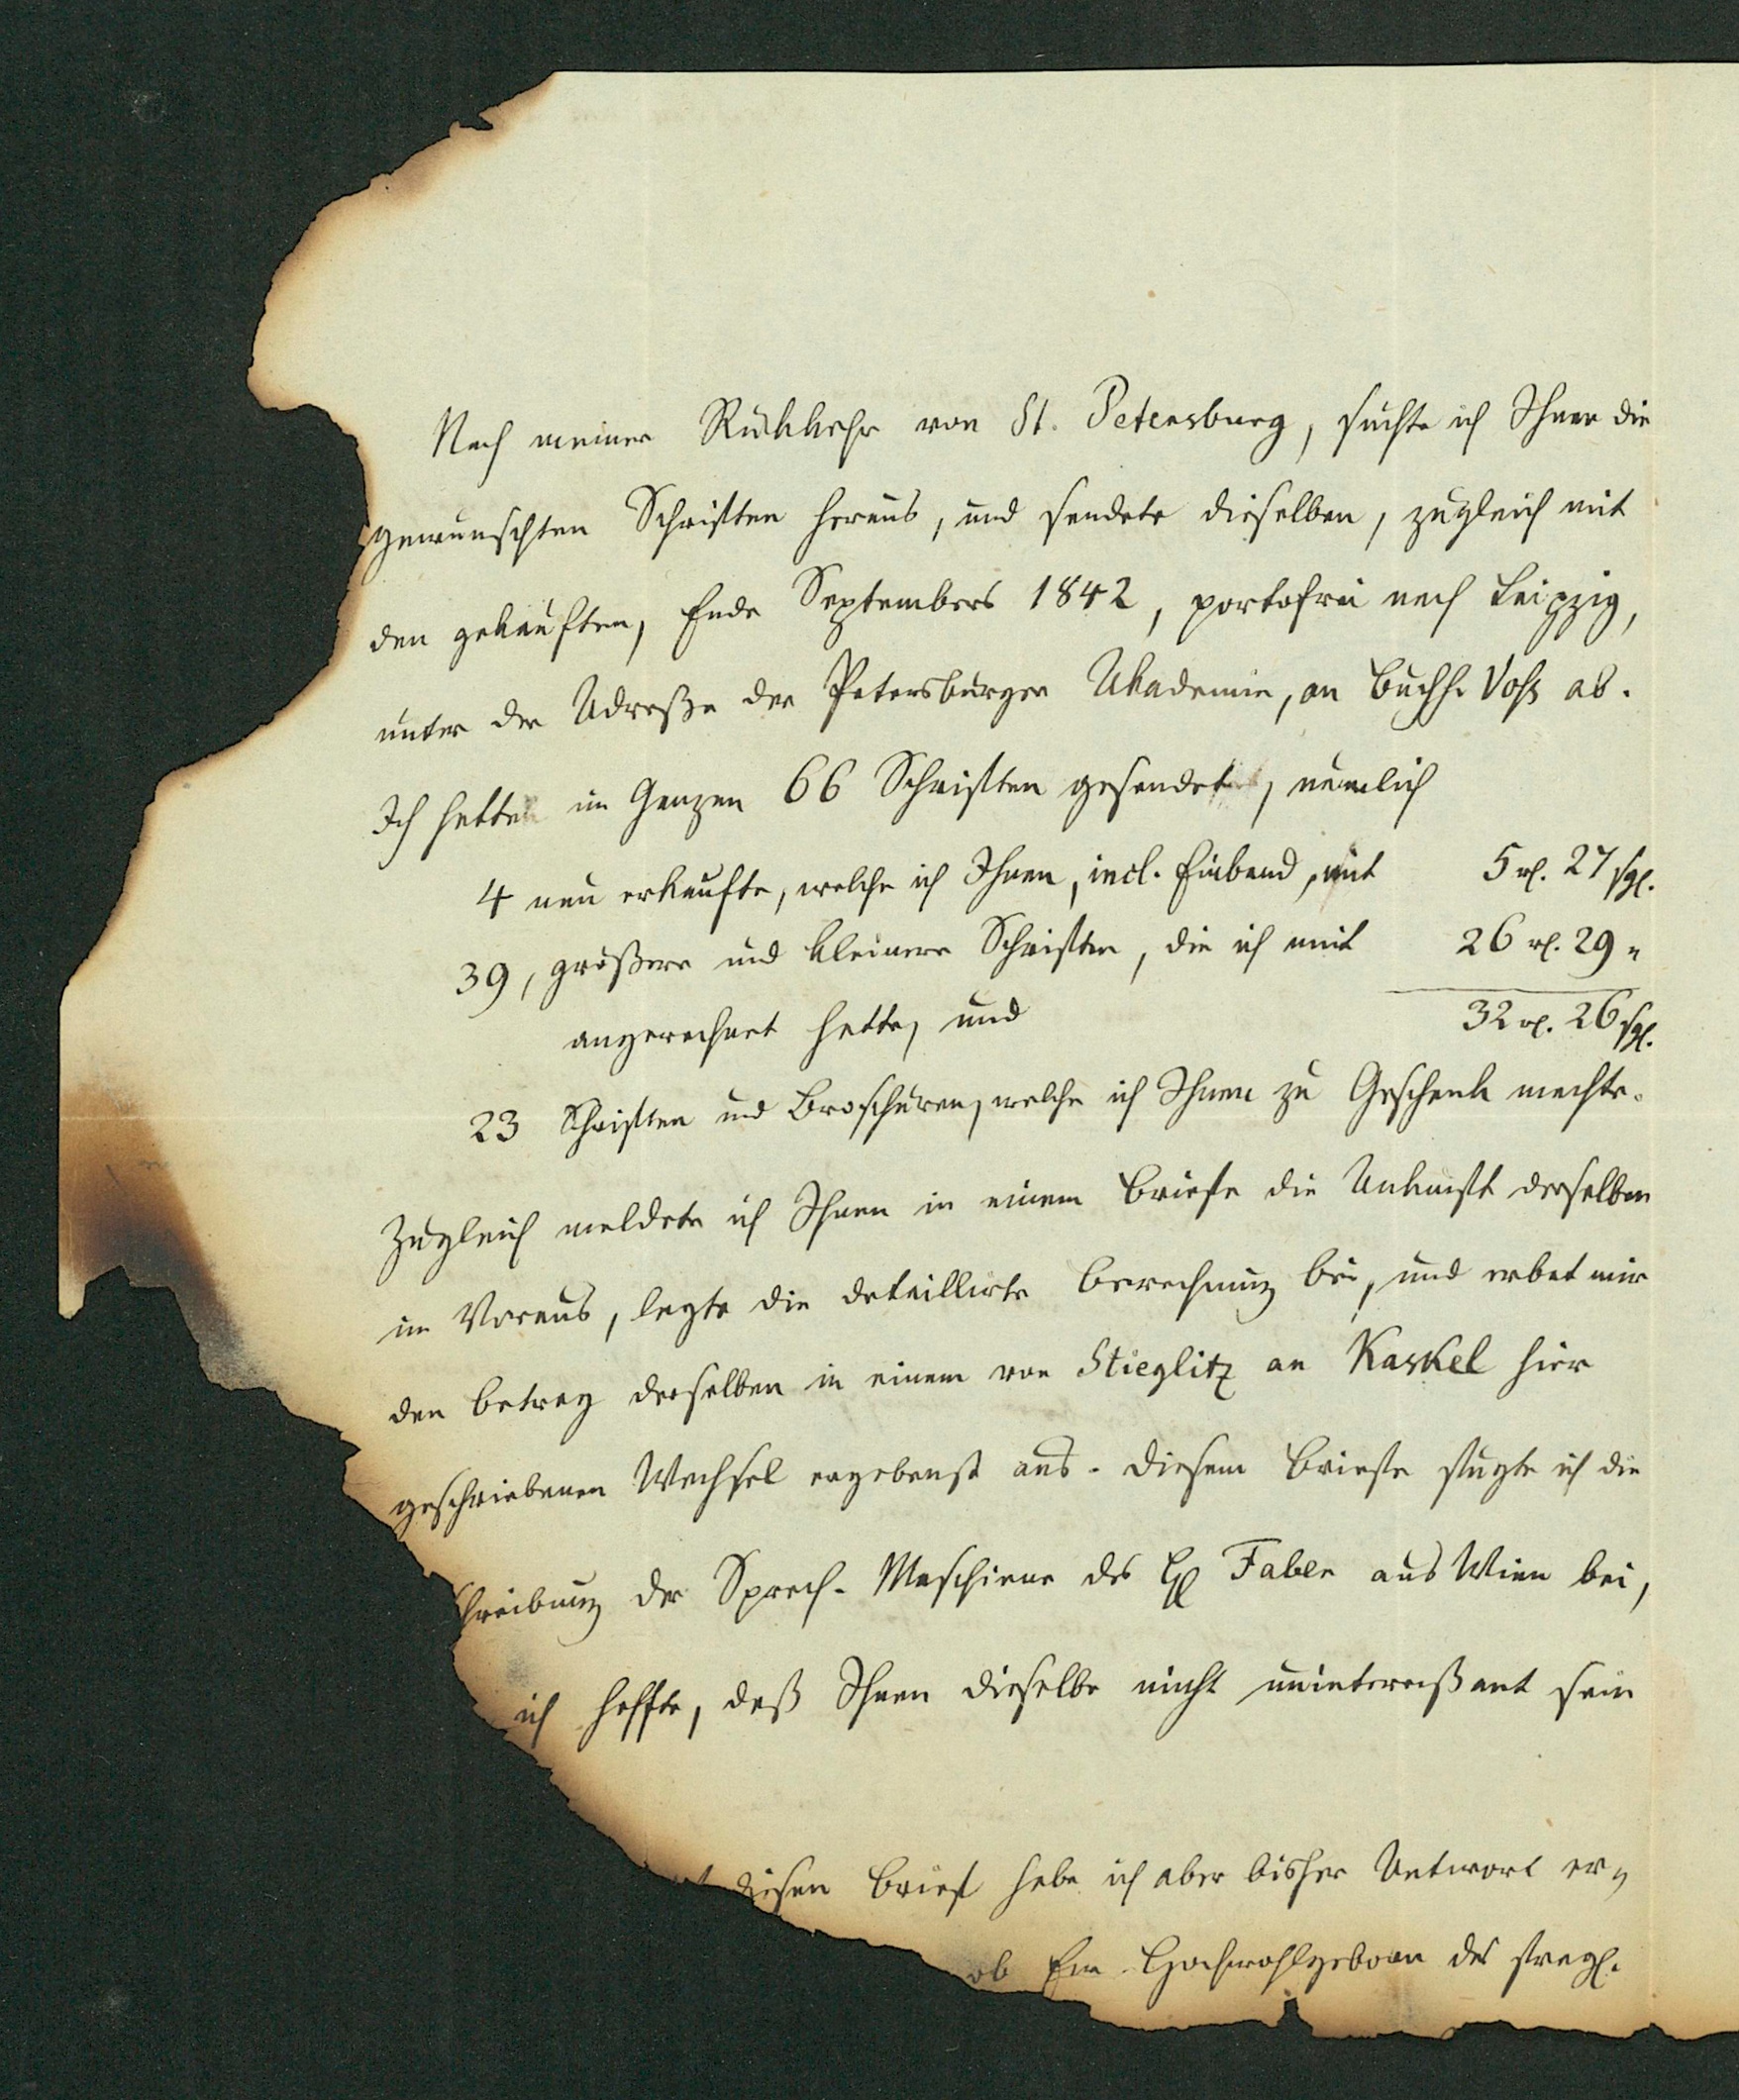 Nach meiner Rückkehr von St. Petersburg, suchte ich Ihnen die
gewünschten Schriften heraus, und sendete dieselben, zugleich mit
den gekauften, Ende Septembers 1842, portofrei nach Leipzig,
unter der Adreße der Petersburger Akademie, an Buchh. Voß ab.
Ich hatte im Ganzen 66 Schriften gesendet, nämlich
4 neu erkaufte, welche ich Ihnen, incl. Einband, mit 5 rl. 27 sgl.
39, größere und kleinere Schriften, die ich mit 26 rl. 29 "
angerechnet hatte, und 32 rl. 26 sgl.
23 Schriften und Broschüren, welche ich Ihnen zu Geschenk machte.
Zugleich meldete ich Ihnen in einem Briefe die Ankunft derselben
im Voraus, legte die detaillirte Berechnung bei, und erbat mir
den Betrag derselben in einem von Stieglitz an Kaskel hier
geschriebenen Wechsel ergebenst aus. Diesem Briefe fügte ich die
schreibung der Sprach-Maschine des H Faber aus Wien bei,
ich hoffte, daß Ihnen dieselbe nicht uninteressant sein
diesen Brief habe ich aber bisher Antwort er-
ob Ew. Hochwohlgeboren des fragl.